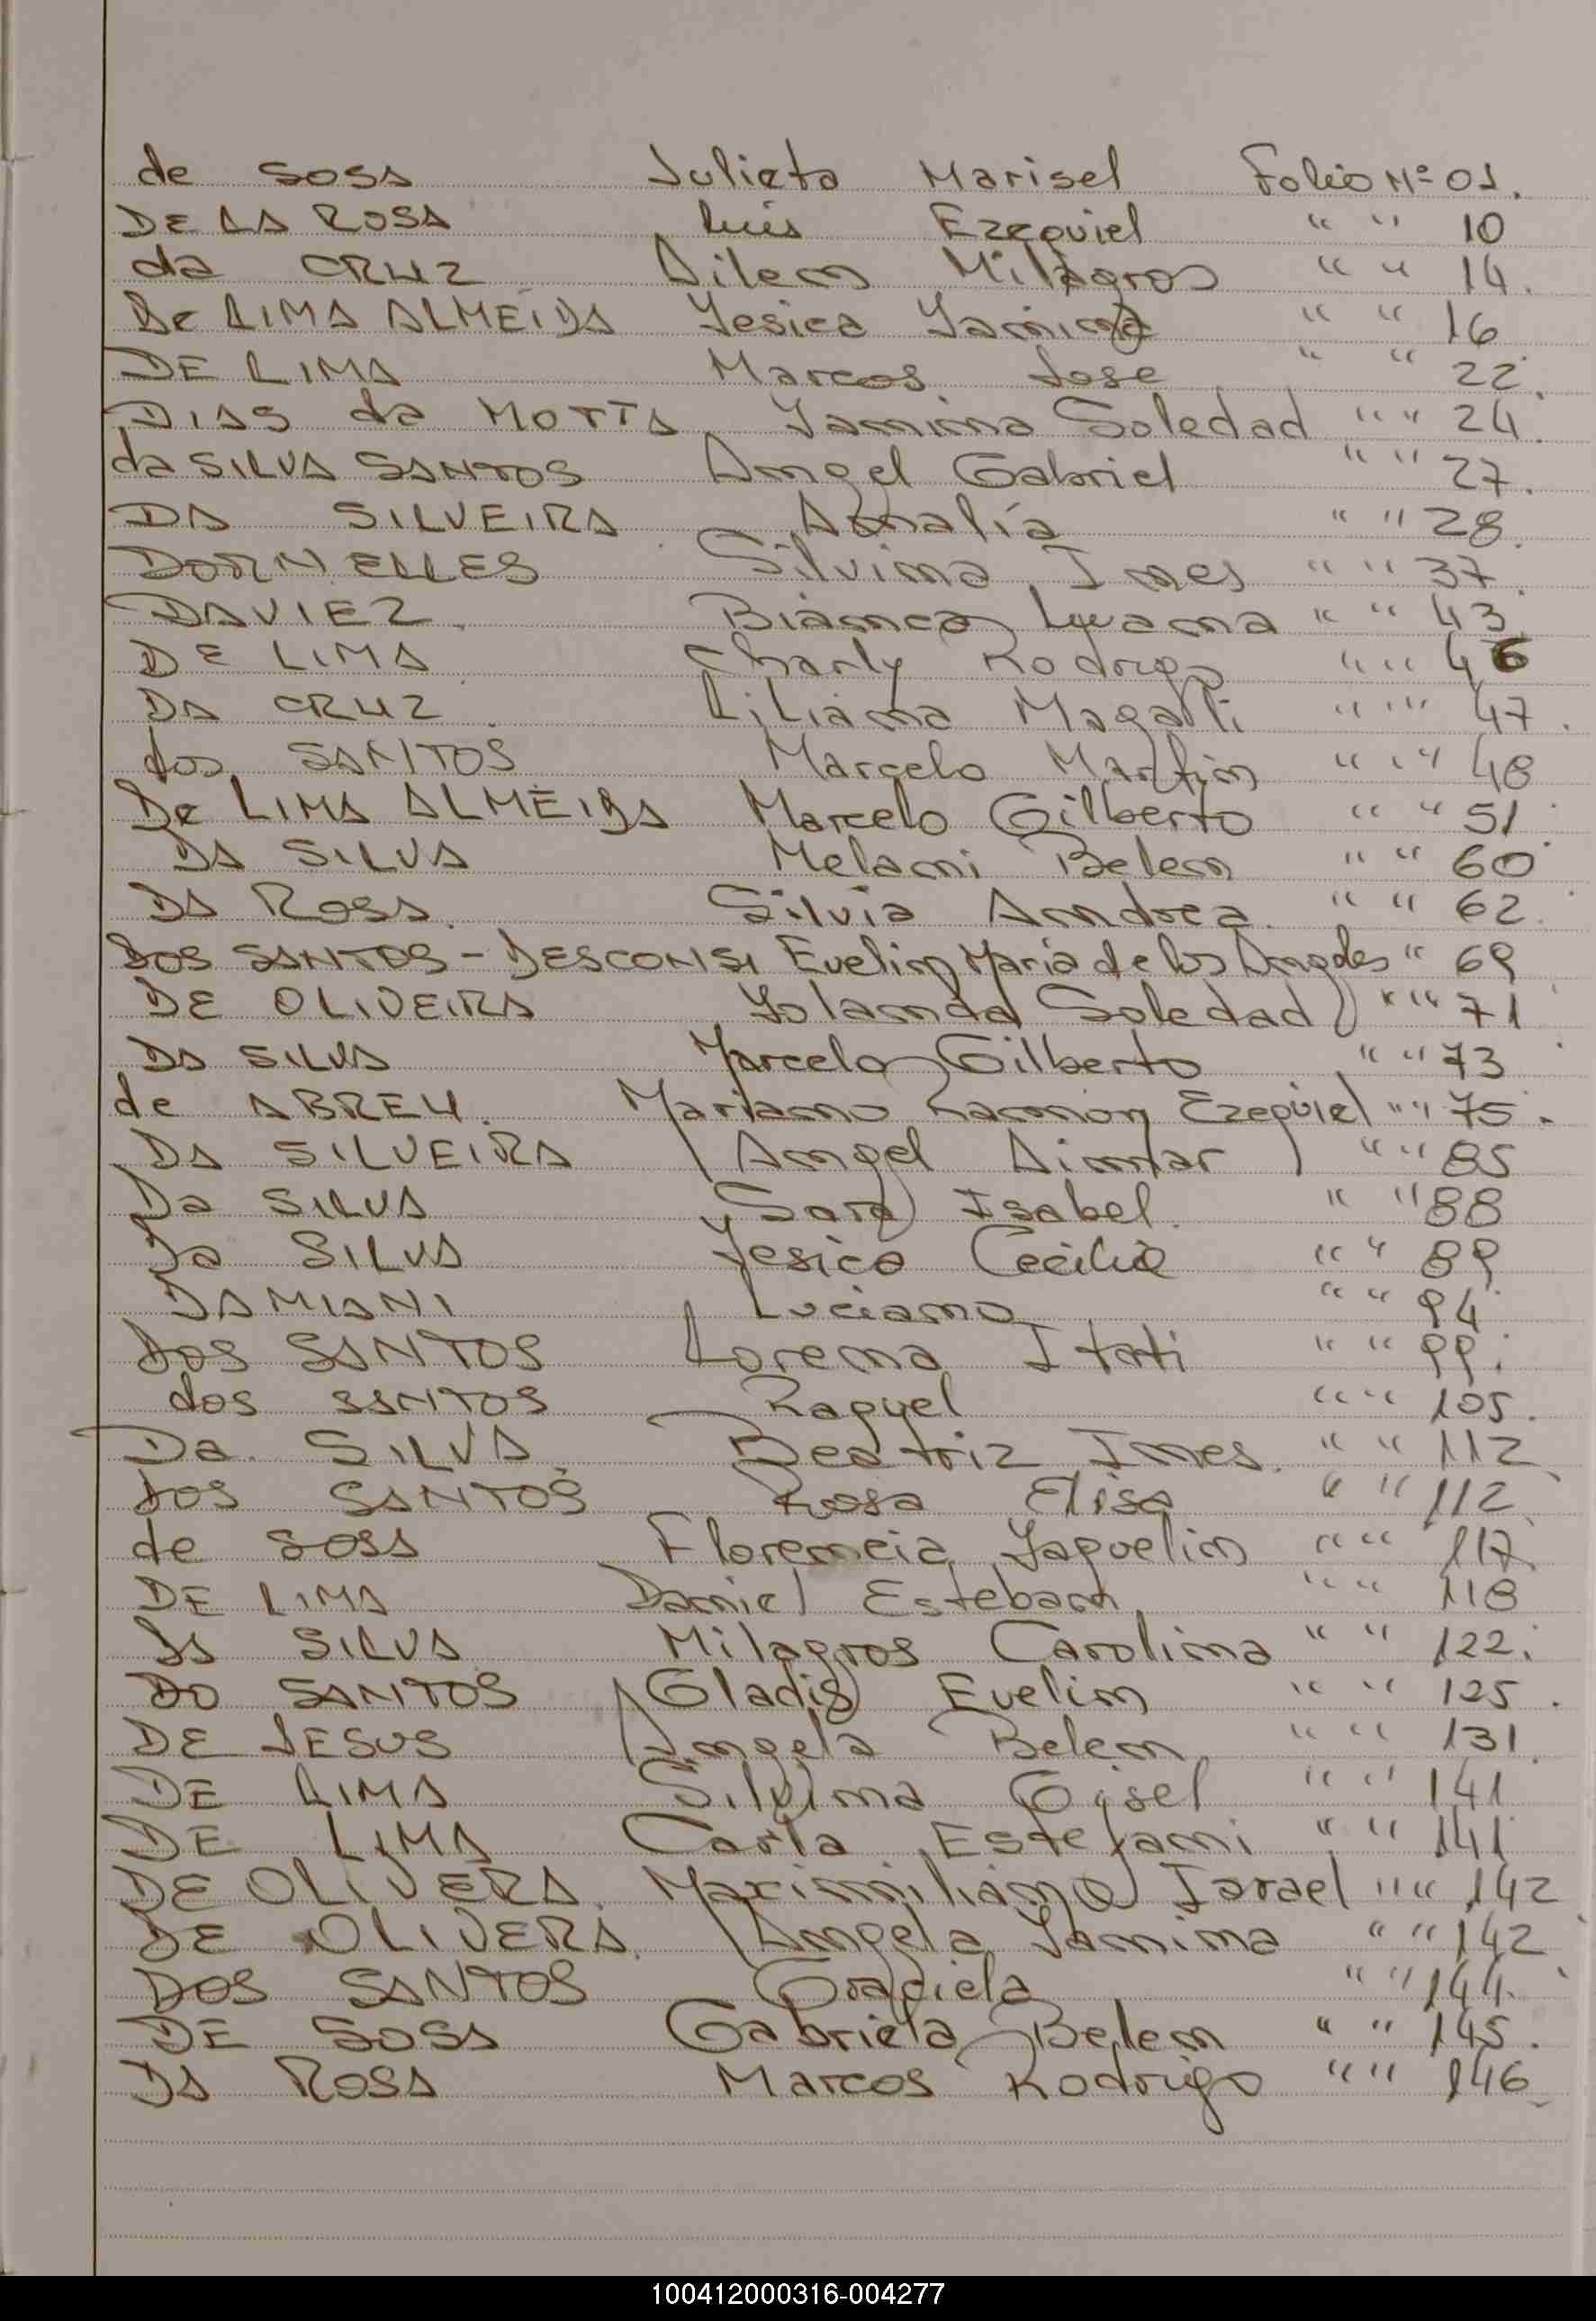 de SOSA Julieta Marisel Folio Nº 01.
DE LA ROSA Luis Ezequiel " " 10
da CRUZ Ailen Milagros " " 14.
De LIMA ALMEIDA Yesica Yamina " " 16
DE LIMA Marcos Jose " " 22.
DIAS da MOTTA Yamina Soledad " " 24.
da SILVA SANTOS Angel Gabriel " " 27.
DA SILVEIRA Analía " " 28.
DORNELLES Silvina Ines " " 37.
DAVIEZ. Bianca Luana " " 43
DE LIMA Charly Rodrigo " " 46
DA CRUZ. Liliana Magali " " 47.
dos SANTOS Marcelo Martin " " 48
De LIMA ALMEIDA Marcelo Gilberto " " 51.
DA SILVA Melani Belen " " 60
DA ROSA. Silvia Andrea. " " 62.
DOS SANTOS - DESCONSI Evelin Maria de los Angeles " 69
DE OLIVEIRA Yolanda Soledad " " 71
DA SILVA Marcelo Gilberto " " 73
de ABREU. Mariano Ramon Ezequiel " " 75.
DA SILVEIRA Angel " " 85
Da SILVA Sara Isabel. " " 88
Da SILVA Yesica Cecilia " " 89
DAMIANI Luciano " " 94
DOS SANTOS Lorena Itati " " 99.
dos SANTOS Raquel " " 105.
Da. SILVA Beatriz Ines. " " 112
dos SANTOS Rosa Elisa " " 112
de SOSA Florencia Yaquelin " " 117.
DE LIMA Daniel Esteban " " 118
DA SILVA Milagros Carolina " " 122.
DO SANTOS Gladis Evelin " " 125.
DE JESUS Angela Belen " " 131.
DE LIMA Silvina Gisel " " 141
DE LIMA Carla Estefani " " 141
DE OLIVERA. Maximiliano Israel " " 142
DE OLIVERA. Angela Yamina " " 142
DOS SANTOS Graciela " " 144.
DE SOSA Gabriela Belen " " 145.
DA ROSA Marcos Rodrigo " " 146
100412000316-004277